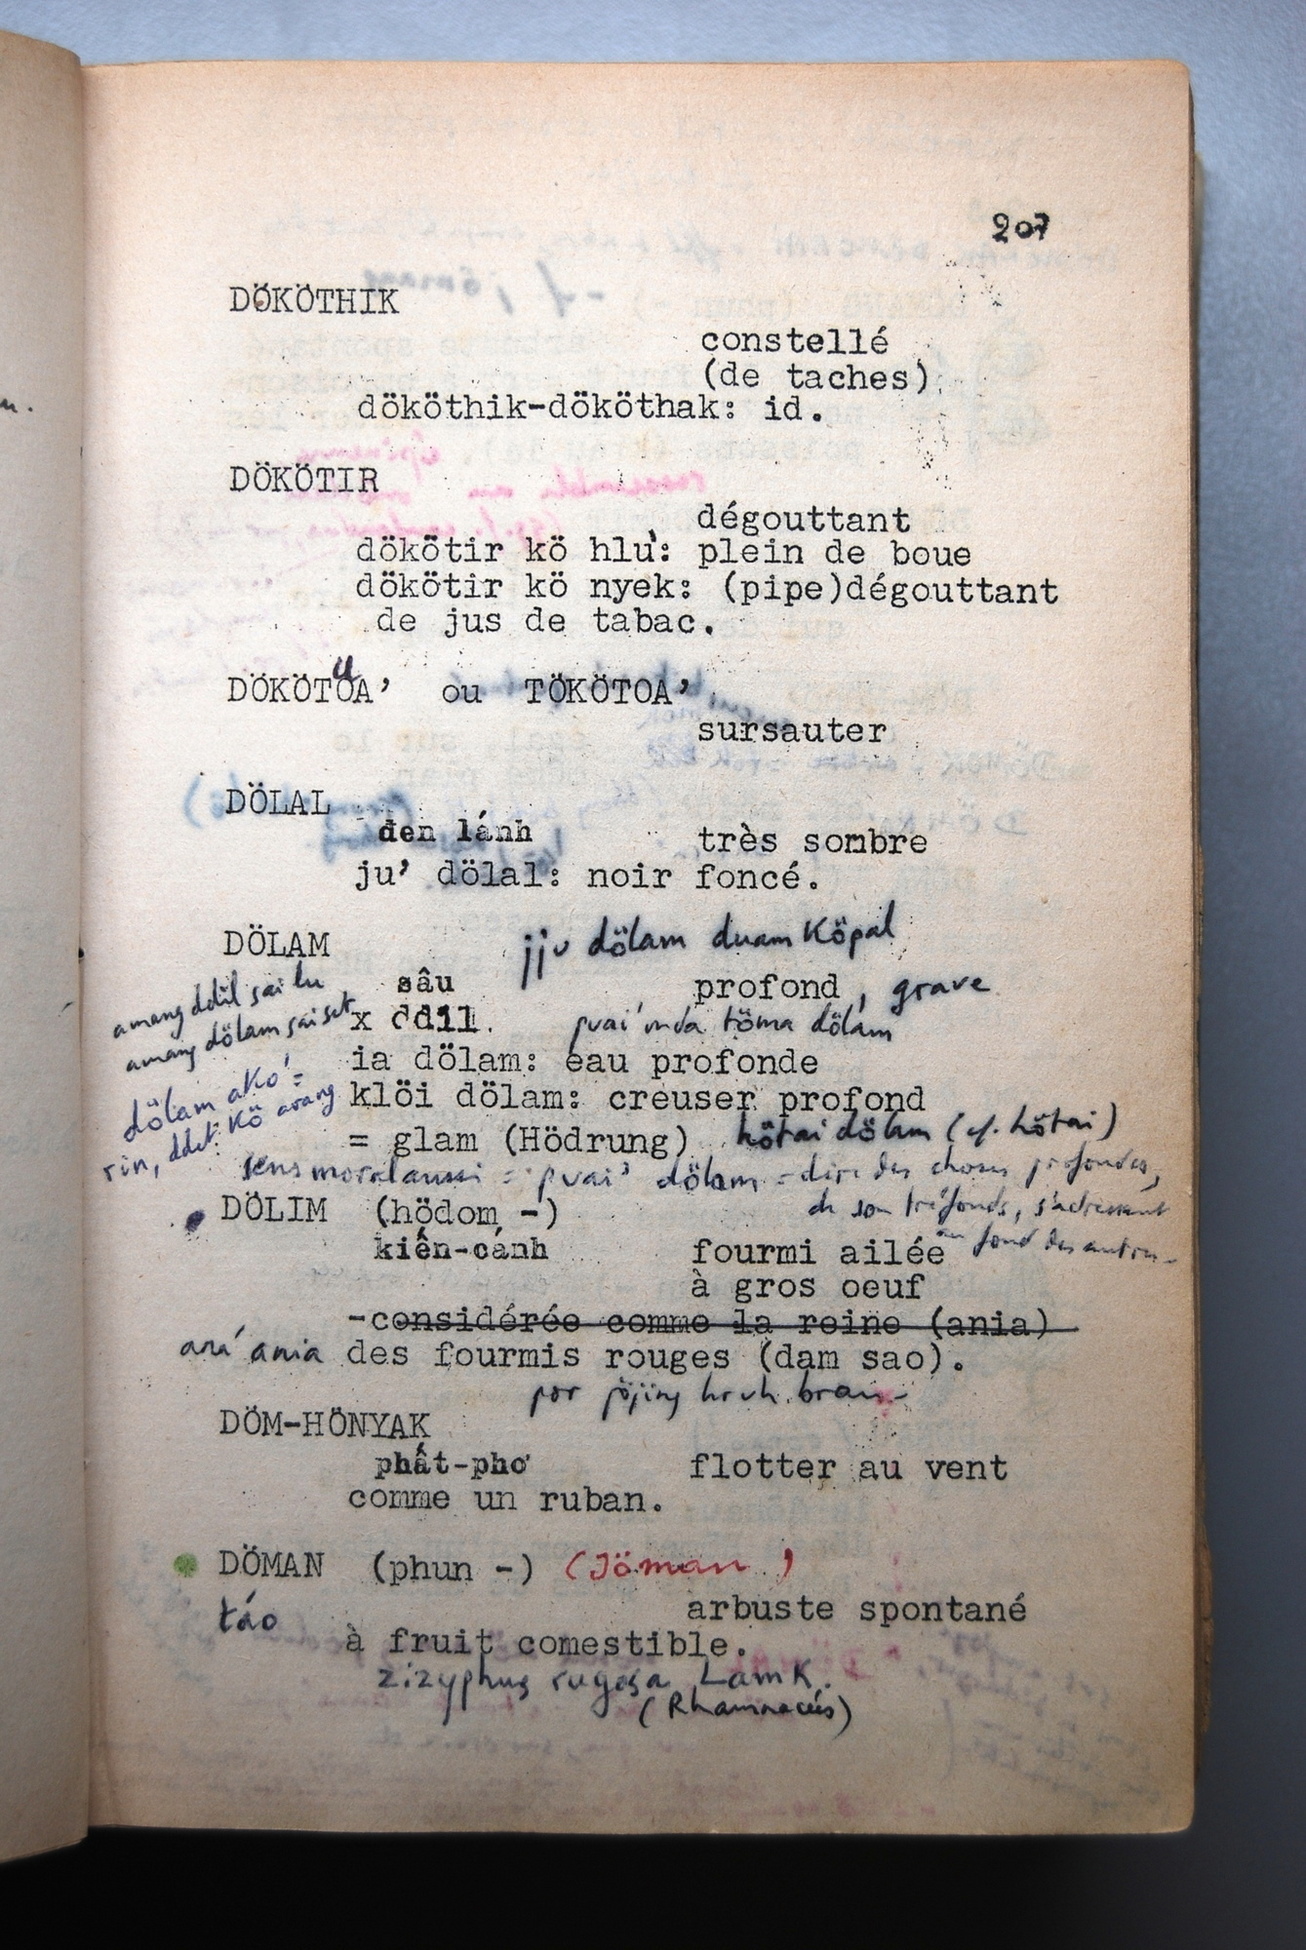 207
DÖKÖTHIK
constellé
(de taches)
dököthik-dököthak: id.
DÖKÖTIR
dégouttant
dökötir kö hlŭ: plein de boue
dökötir kö nyek: (pipe)dégouttant
de jus de tabac.
DÖKÖTUA' ou TÖKÖTOA'
sursauter
DÖLAL
đen lánh très sombre
ju' dölal: noir foncé.
DÖLAM jju dölam duam Köpal
sâu profond, grave
amang ddil sai lu
x ddil. töma dölam
amang dölam sai set
ia dölam: eau profonde
klöi dölam: creuser profond
dölam ako' =
rin, ddet kö arang
= glam (Hödrung) hötai dölam (cf. hötai)
sens moral aussi = puai' dölam = dire des choses profondes,
de son tréfonds, s'adressant
au fond des autres
DÖLIM (hödom -)
kiến-cánh fourmi ailée
à gros oeuf
-considérée comme la reine (ania)
ará ania des fourmis rouges (dam sao).
por pöjing hruh
DÖM-HÖNYAK
phất-phơ flotter au vent
comme un ruban.
DÖMAN (phun -) (Jöman)
táo arbuste spontané
à fruit comestible.
zizyphus rugosa Lamk.
(Rhamnacées)